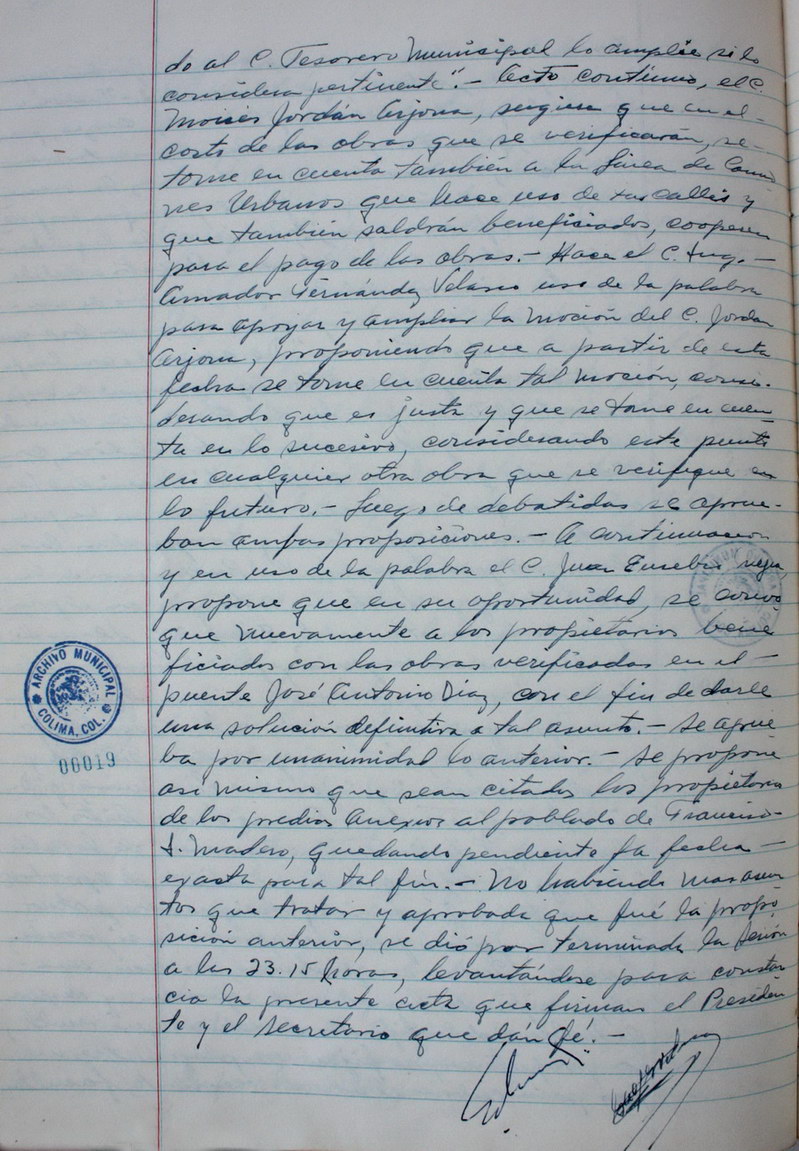 do al C. Tesorero Municipal lo amplíe si lo
considera pertinente".- Acto continuo, el C.
Moisés Jordán Arjona, sugiere que en el-
costo de las obras que se verificarán, se-
tome en cuenta también a la Línea de Camio
nes Urbanos que hace uso de sus calles y
que también saldrán beneficiados, cooperen
para el pago de las obras.- Hace el C. Ing.-
Amador Fernández Velasco uso de la palabra
para apoyar y ampliar la moción del C. Jordán
Arjona, proponiendo que a partir de esta
fecha se tome en cuenta tal moción, consi-
derando que es justa y que se tome en cuen-
ta en lo sucesivo, considerando este punto
en cualquier otra obra que se verifique en
lo futuro.- Luego de debatidas se aprue-
ban ambas proposiciones.- A continuacion
y en uso de la palabra el C. Juan Eusebio
propone que en su oportunidad, se convo
que nuevamente a los propietarios bene
ficiados con las obras verificadas en el-
puente José Antonio Díaz, con el fin de darle
una solución definitiva a tal asunto.- Se aprue
ba por unanimidad lo anterior.- Se propone
asi mismo que sean citados los propietarios
de los predios anexos al poblado de Francisco-
I. Madero, quedando pendiente la fecha-
exacta para tal fin.- No habiendo mas asun
tos que tratar y aprobada que fué la propo
sición anterior, se dió por terminada la Sesión
a las 23.15 horas, levantándose para constan
cia la presente acta que firman el Presiden
te y el secretario que dán fé.-
ARCHIVO MUNICIPAL
COLIMA, COL.
00019